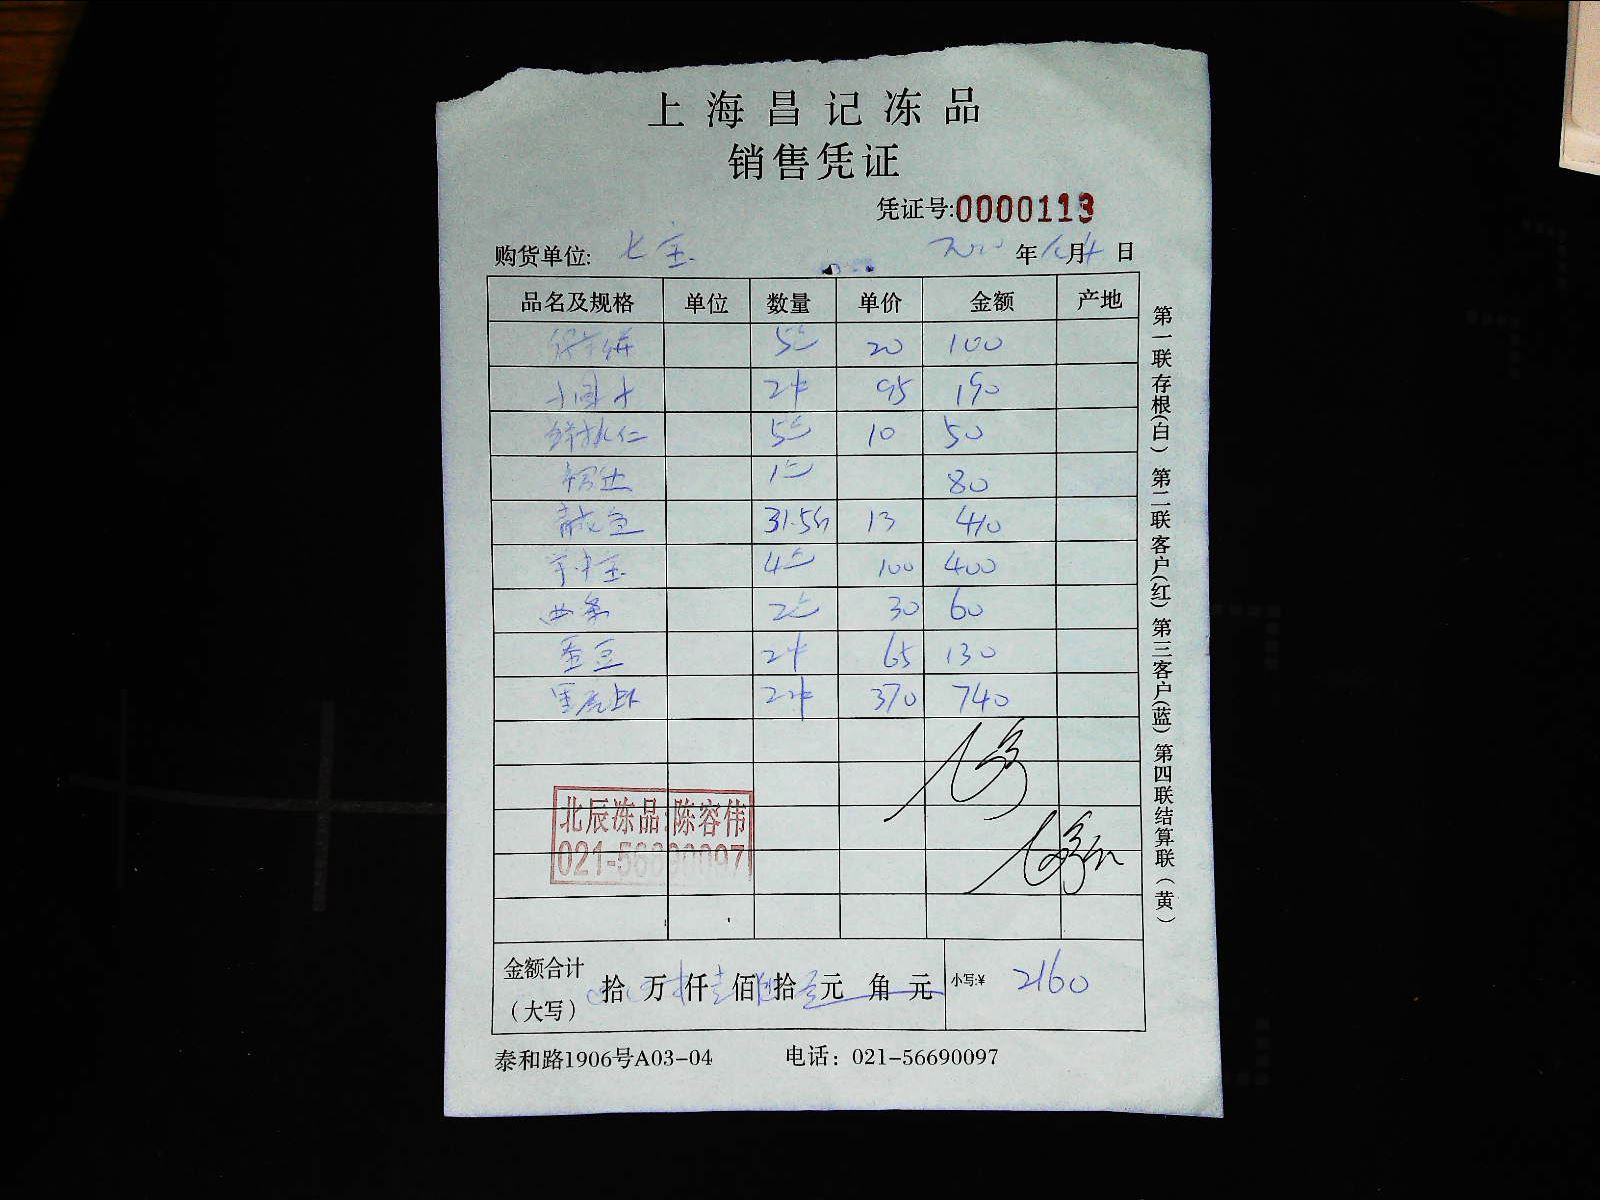 上海昌记冻品
销售凭证
凭证号:0000113
购货单位: 七宝 年 月 日
品名及规格 单位 数量 单价 金额 产地
20 100
2件 95 190
鲜桃仁 10 50
80
31.5 13 410
4 100 400
西条 2 30 60
蚕豆 2件 65 130
黑虎虾 2件 370 740
北辰冻品:陈容伟
021-56690097
金额合计
(大写)
拾 万 仟 佰 拾 元 角 元
小写:¥ 2160
泰和路1906号A03-04 电话: 021-56690097
第一联存根(白) 第二联客户(红) 第三客户(蓝) 第四联结算联(黄)